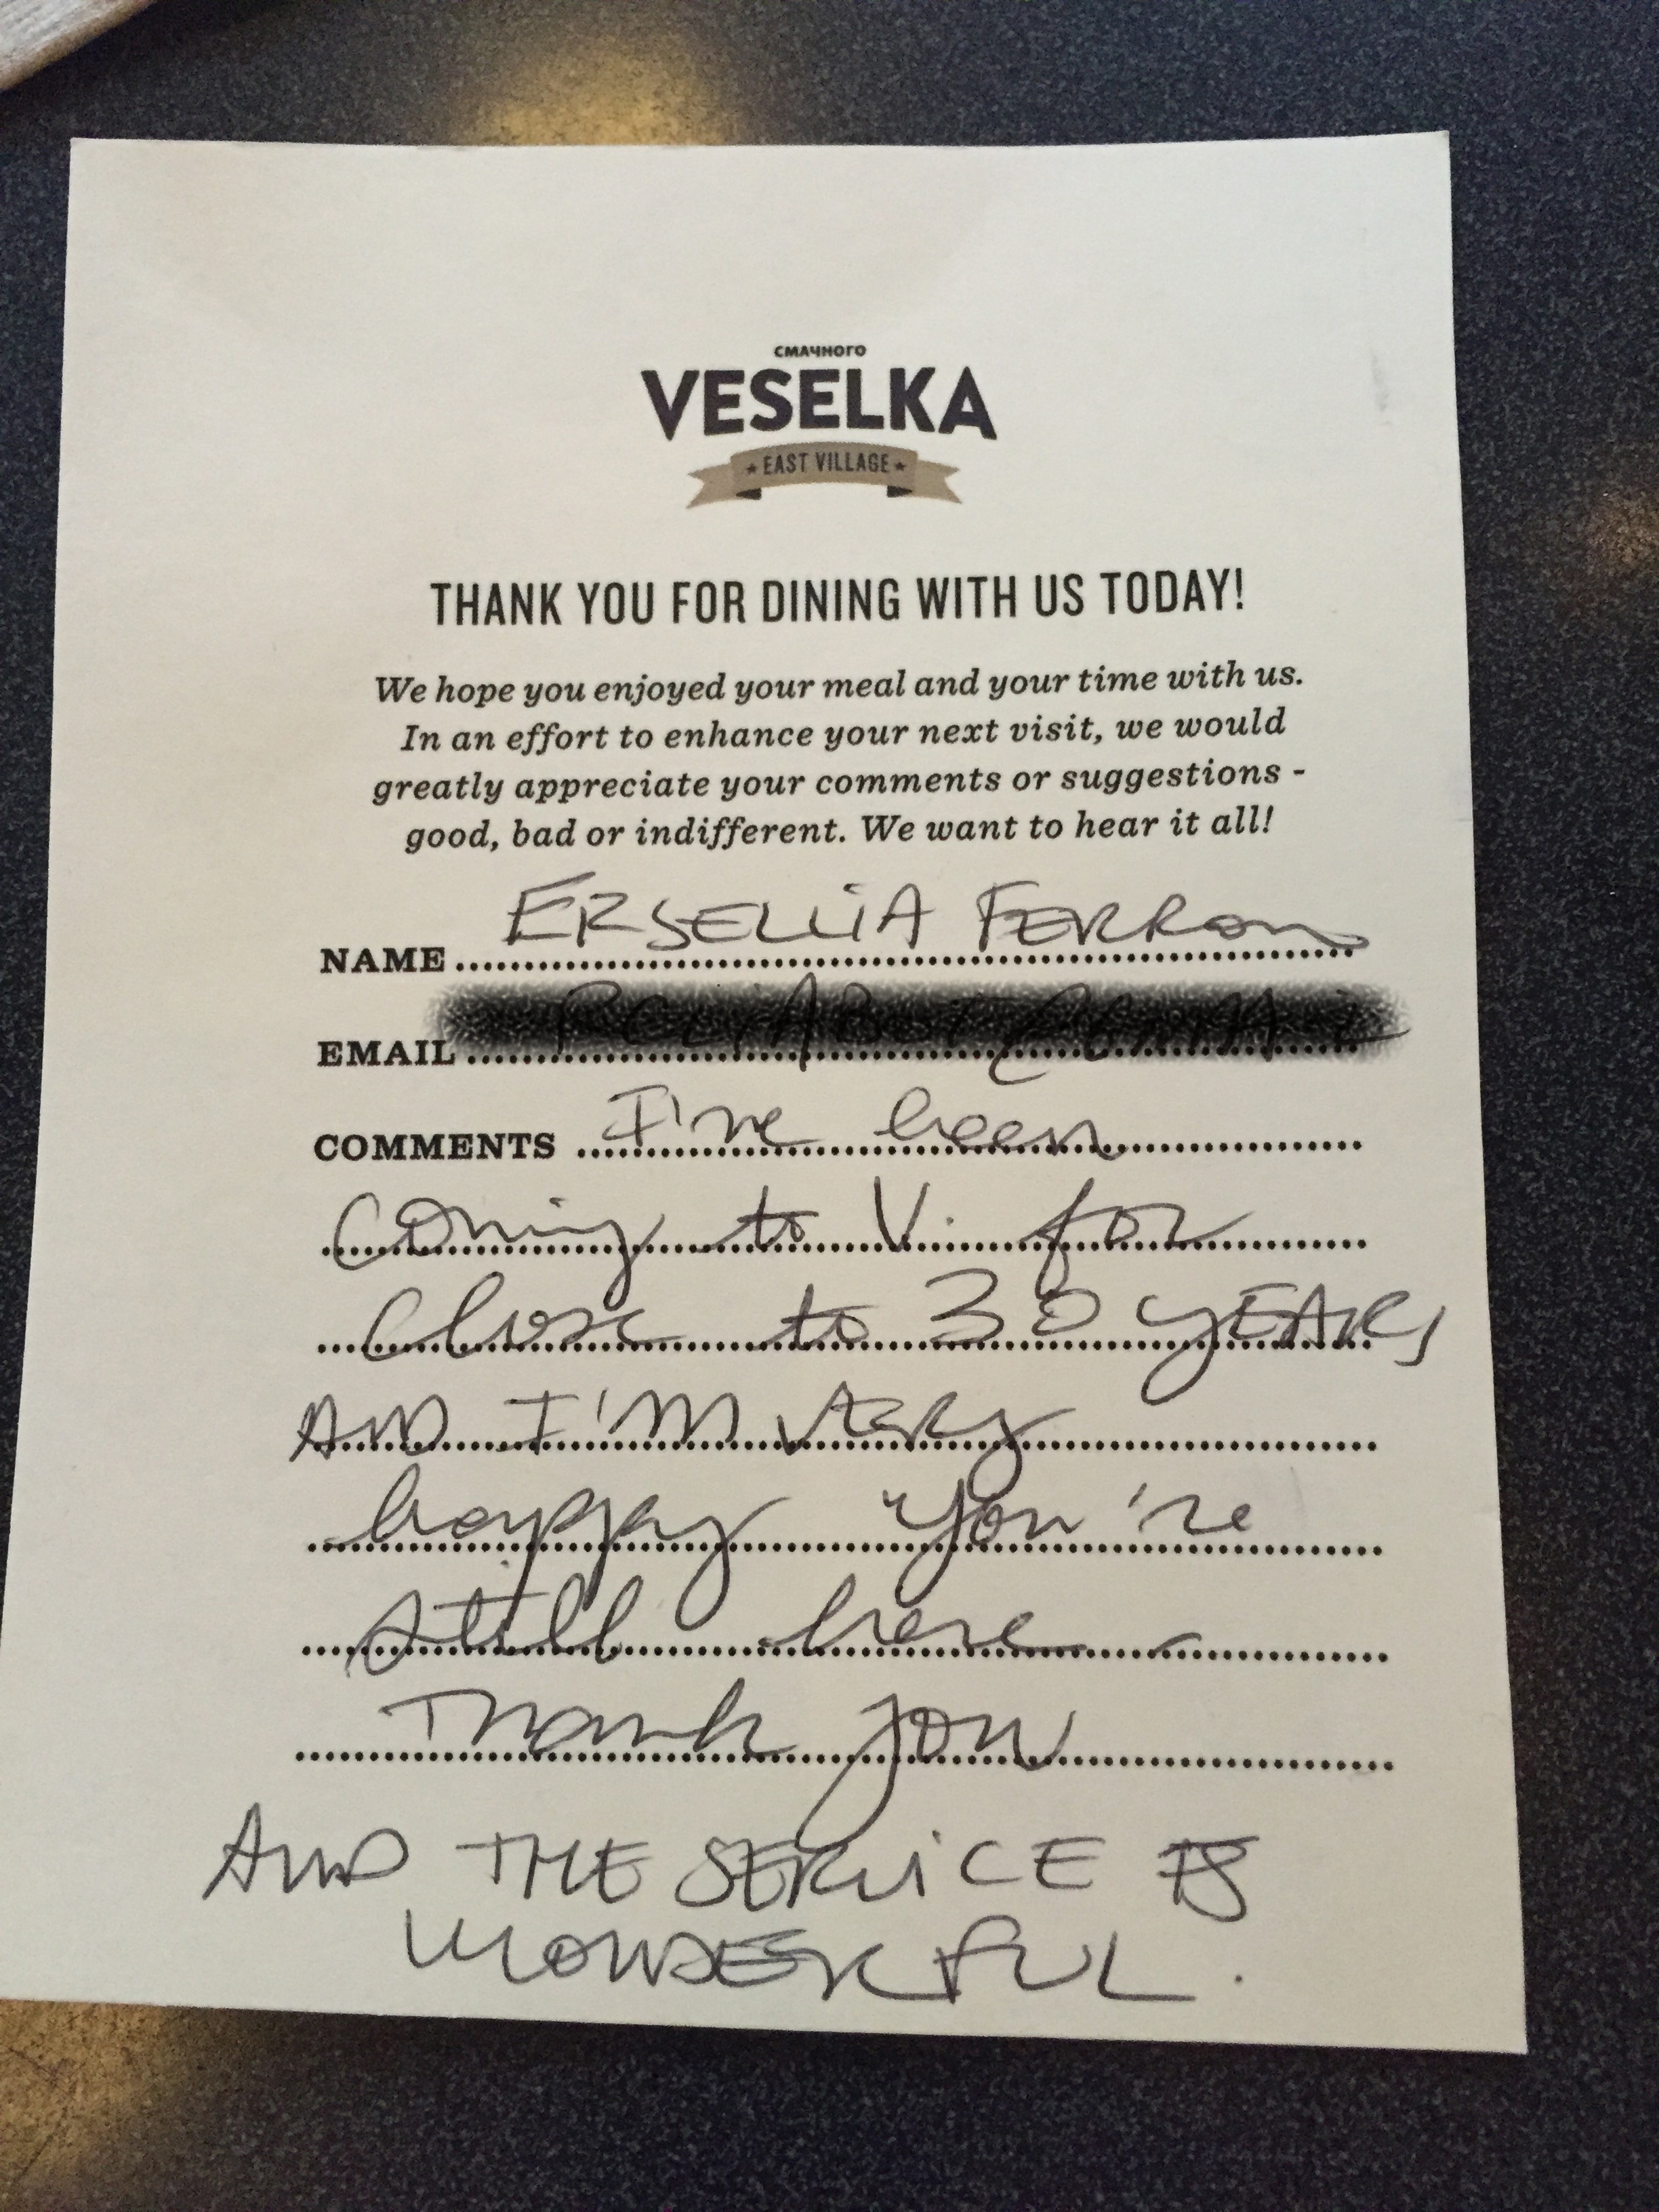 СМАЧНОГО
VESELKA
EAST VILLAGE
THANK YOU FOR DINING WITH US TODAY!
We hope you enjoyed your meal and your time with us.
In an effort to enhance your next visit, we would
greatly appreciate your comments or suggestions -
good, bad or indifferent. We want to hear it all!
NAME ERSELLIA FERRON
EMAIL
COMMENTS I've been
coming to V. for
close to 30 YEARS
AND I'M VERY
happy you're
still here -
Thank you
AND THE SERVICE IS
WONDERFUL.